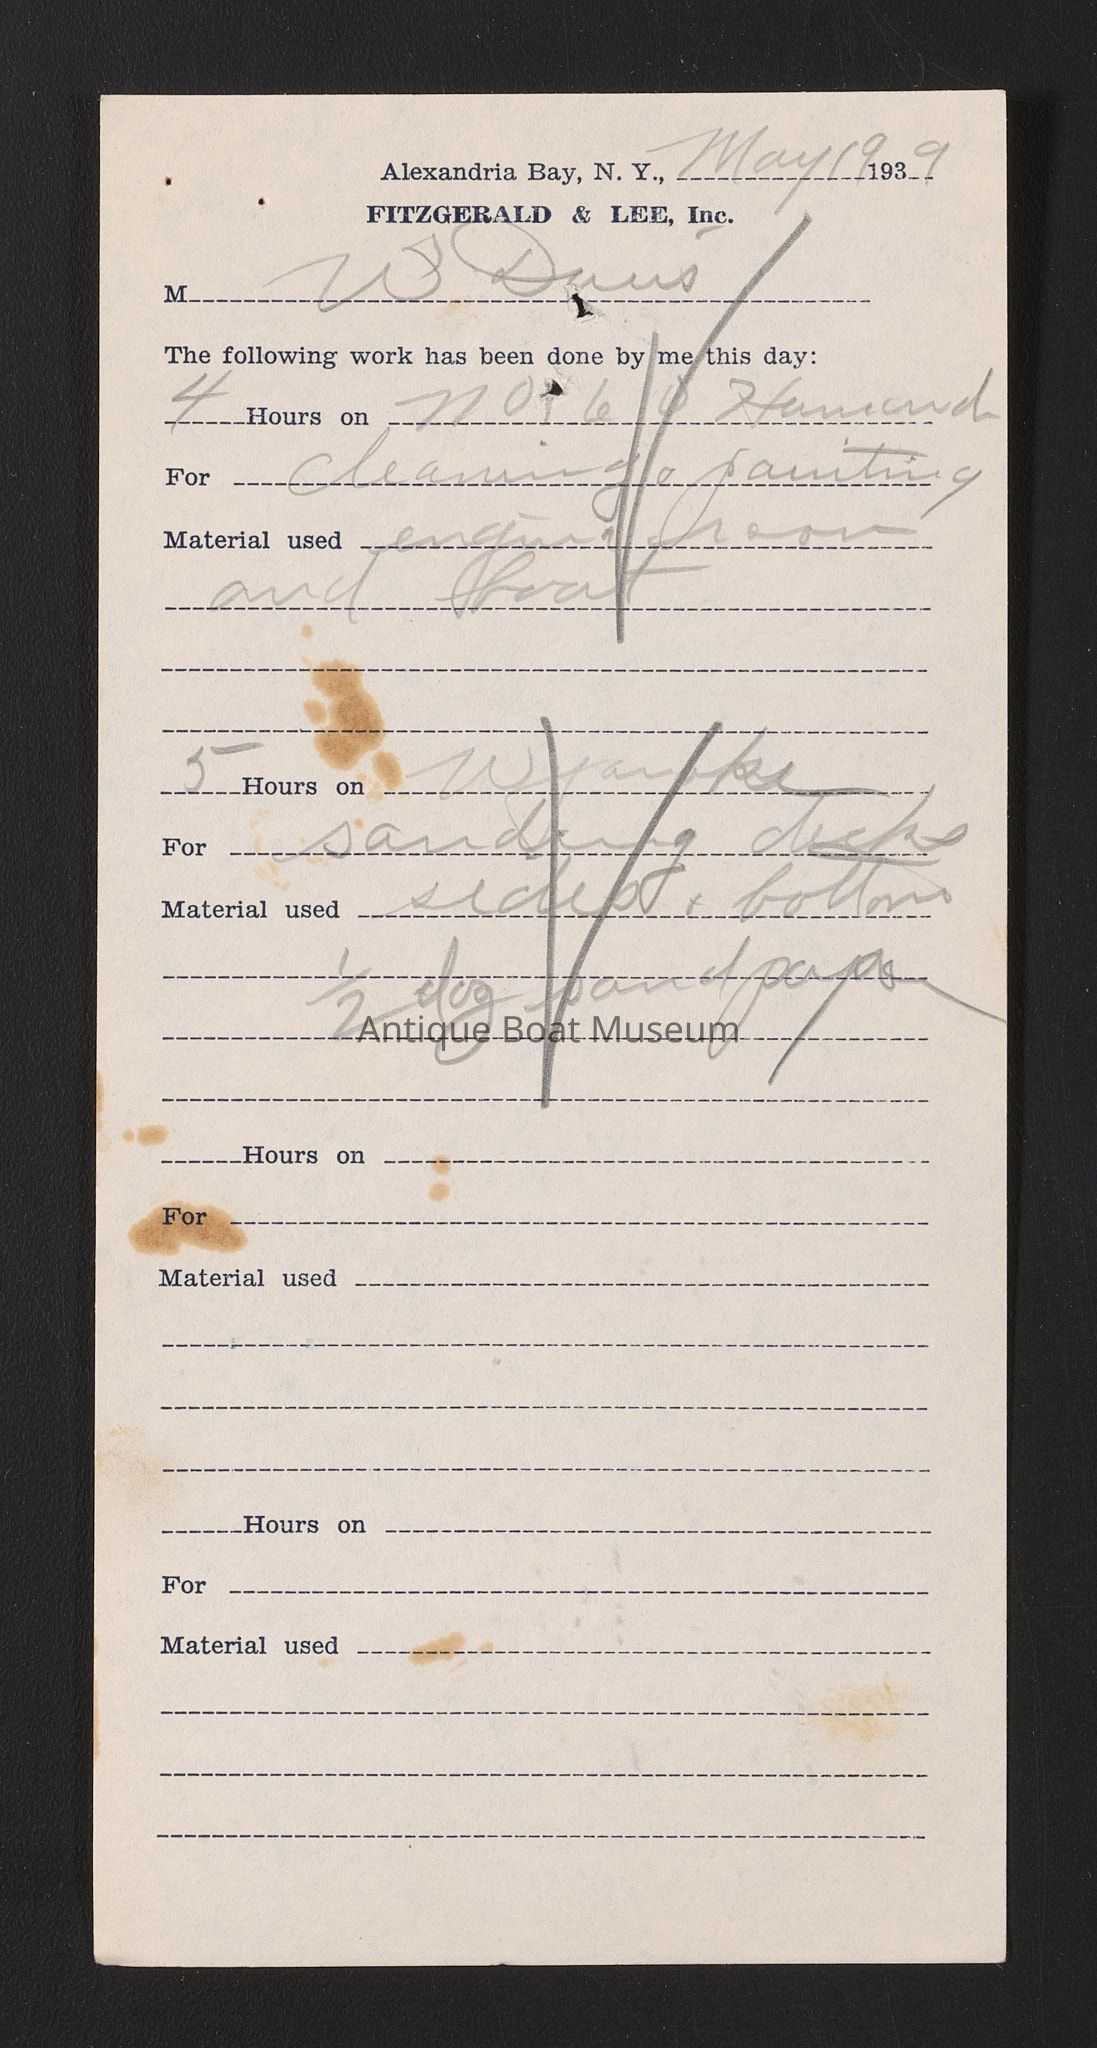 Alexandria Bay, N. Y., May 19 1939
FITZGERALD & LEE, Inc.
M W Davis
The following work has been done by me this day:
4 Hours on
For cleaning & painting
Material used engine room
and boat
5 Hours on
For sanding decks
Material used sides & bottom
1/2 doz sand paper
Antique Boat Museum
Hours on
For
Material used
Hours on
For
Material used